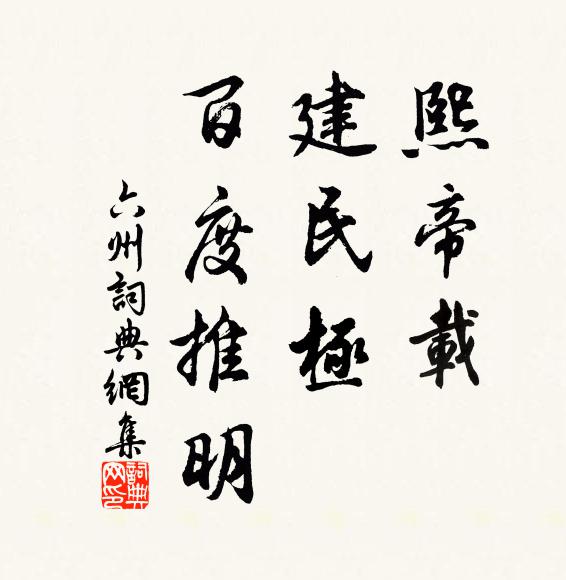 熙帝載
建民極
百度推明
六州詞典網集
詞典
网印